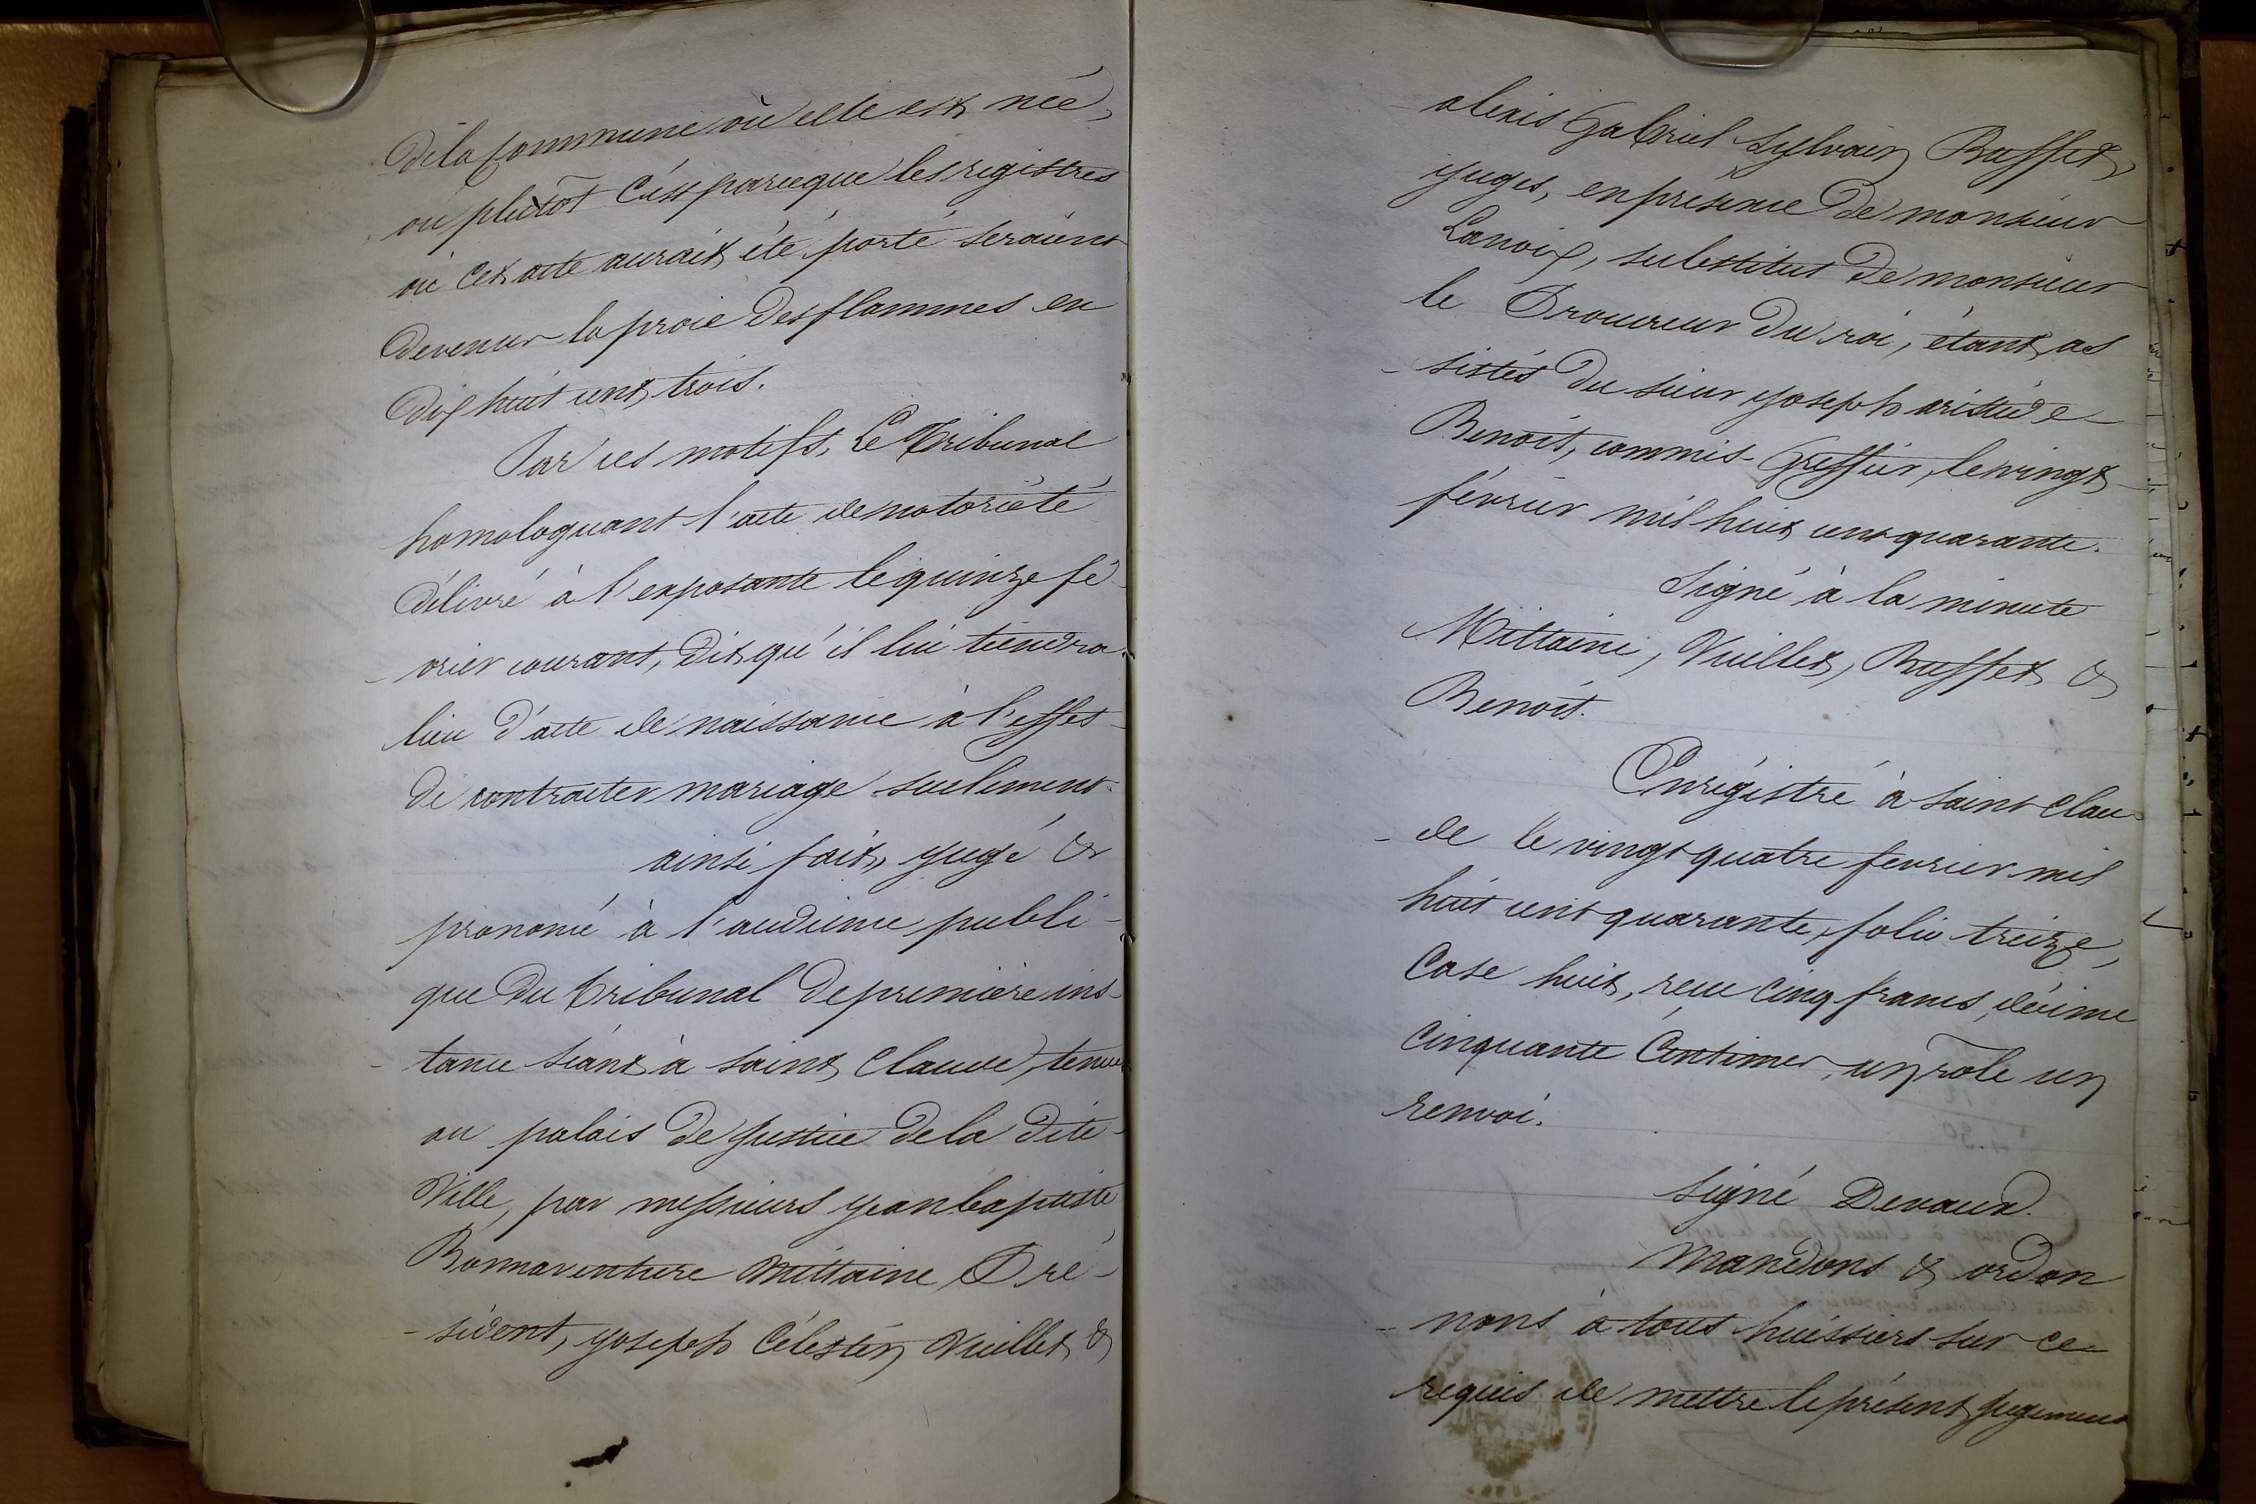 de la commune où elle est née,
où plutôt c'est parceque les registres
où cet acte aurait été porté seraient
devenus la proie des flammes en
dix huit cent trois.
Par ces motifs, Le Tribunal
homologuant l'acte de notoriété
délivré à l'exposante le quinze fé-
-vrier courant, dit qu'il lui tiendra
lieu d'acte de naissance à l'effet
de contracter mariage seulement.
ainsi fait, jugé &
prononcé à l'audience publi-
que du tribunal de première ins-
-tance séant à saint Claude, tenue
au palais de justice de la dite
Ville, par messieurs jean baptiste
Bonnaventure Mittaine, Pré-
-sident, joseph Célestin Vuillet &
alexis Gabriel Sylvain Buffet,
juges, en présence de monsieur
Lanoix, substitut de monsieur
le Procureur du roi, étant as
-sistés du sieur joseph aristide
Benoit, commis-Greffier, le vingt
février mil huit cent quarante.
Signé à la minute
Mittaine, Vuillet, Buffet &
Benoit.
Enrégistré à saint Clau-
-de le vingt quatre fevrier mil
huit cent quarante, folio treize,
Case huit, recu cinq francs, décime
cinquante Centimes, un rôle un
renvoi.
signé Devaux.
Mandons & ordon
-nons à tous huissiers sur ce
requis de mettre le présent jugement